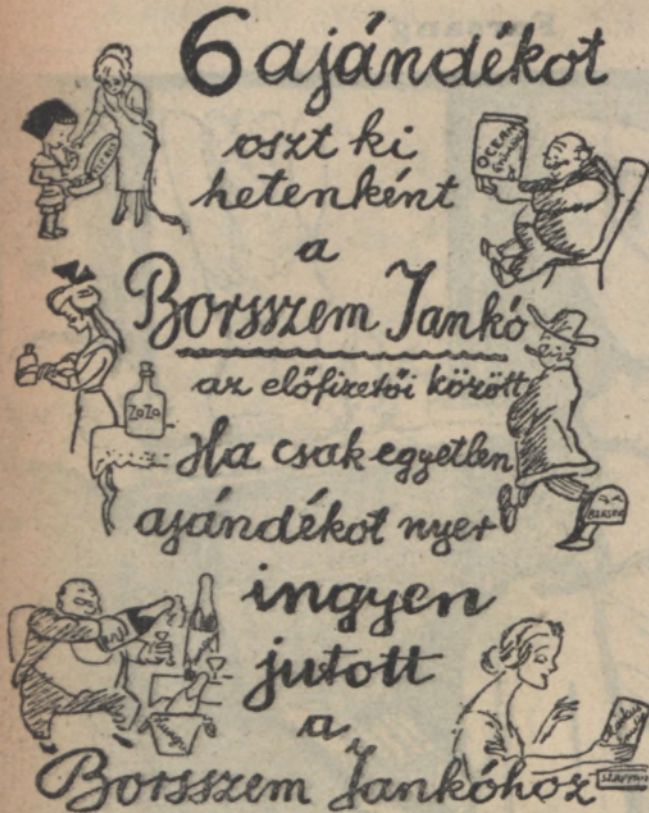 6 ajándékot
oszt ki
hetenként
a
OCEAN
Borsszem Jankó
az előfizetői között
ZaZa
Ha csak egyetlen
ajándékot nyer
BERSON
ingyen
jutott
a
Borsszem Jankóhoz